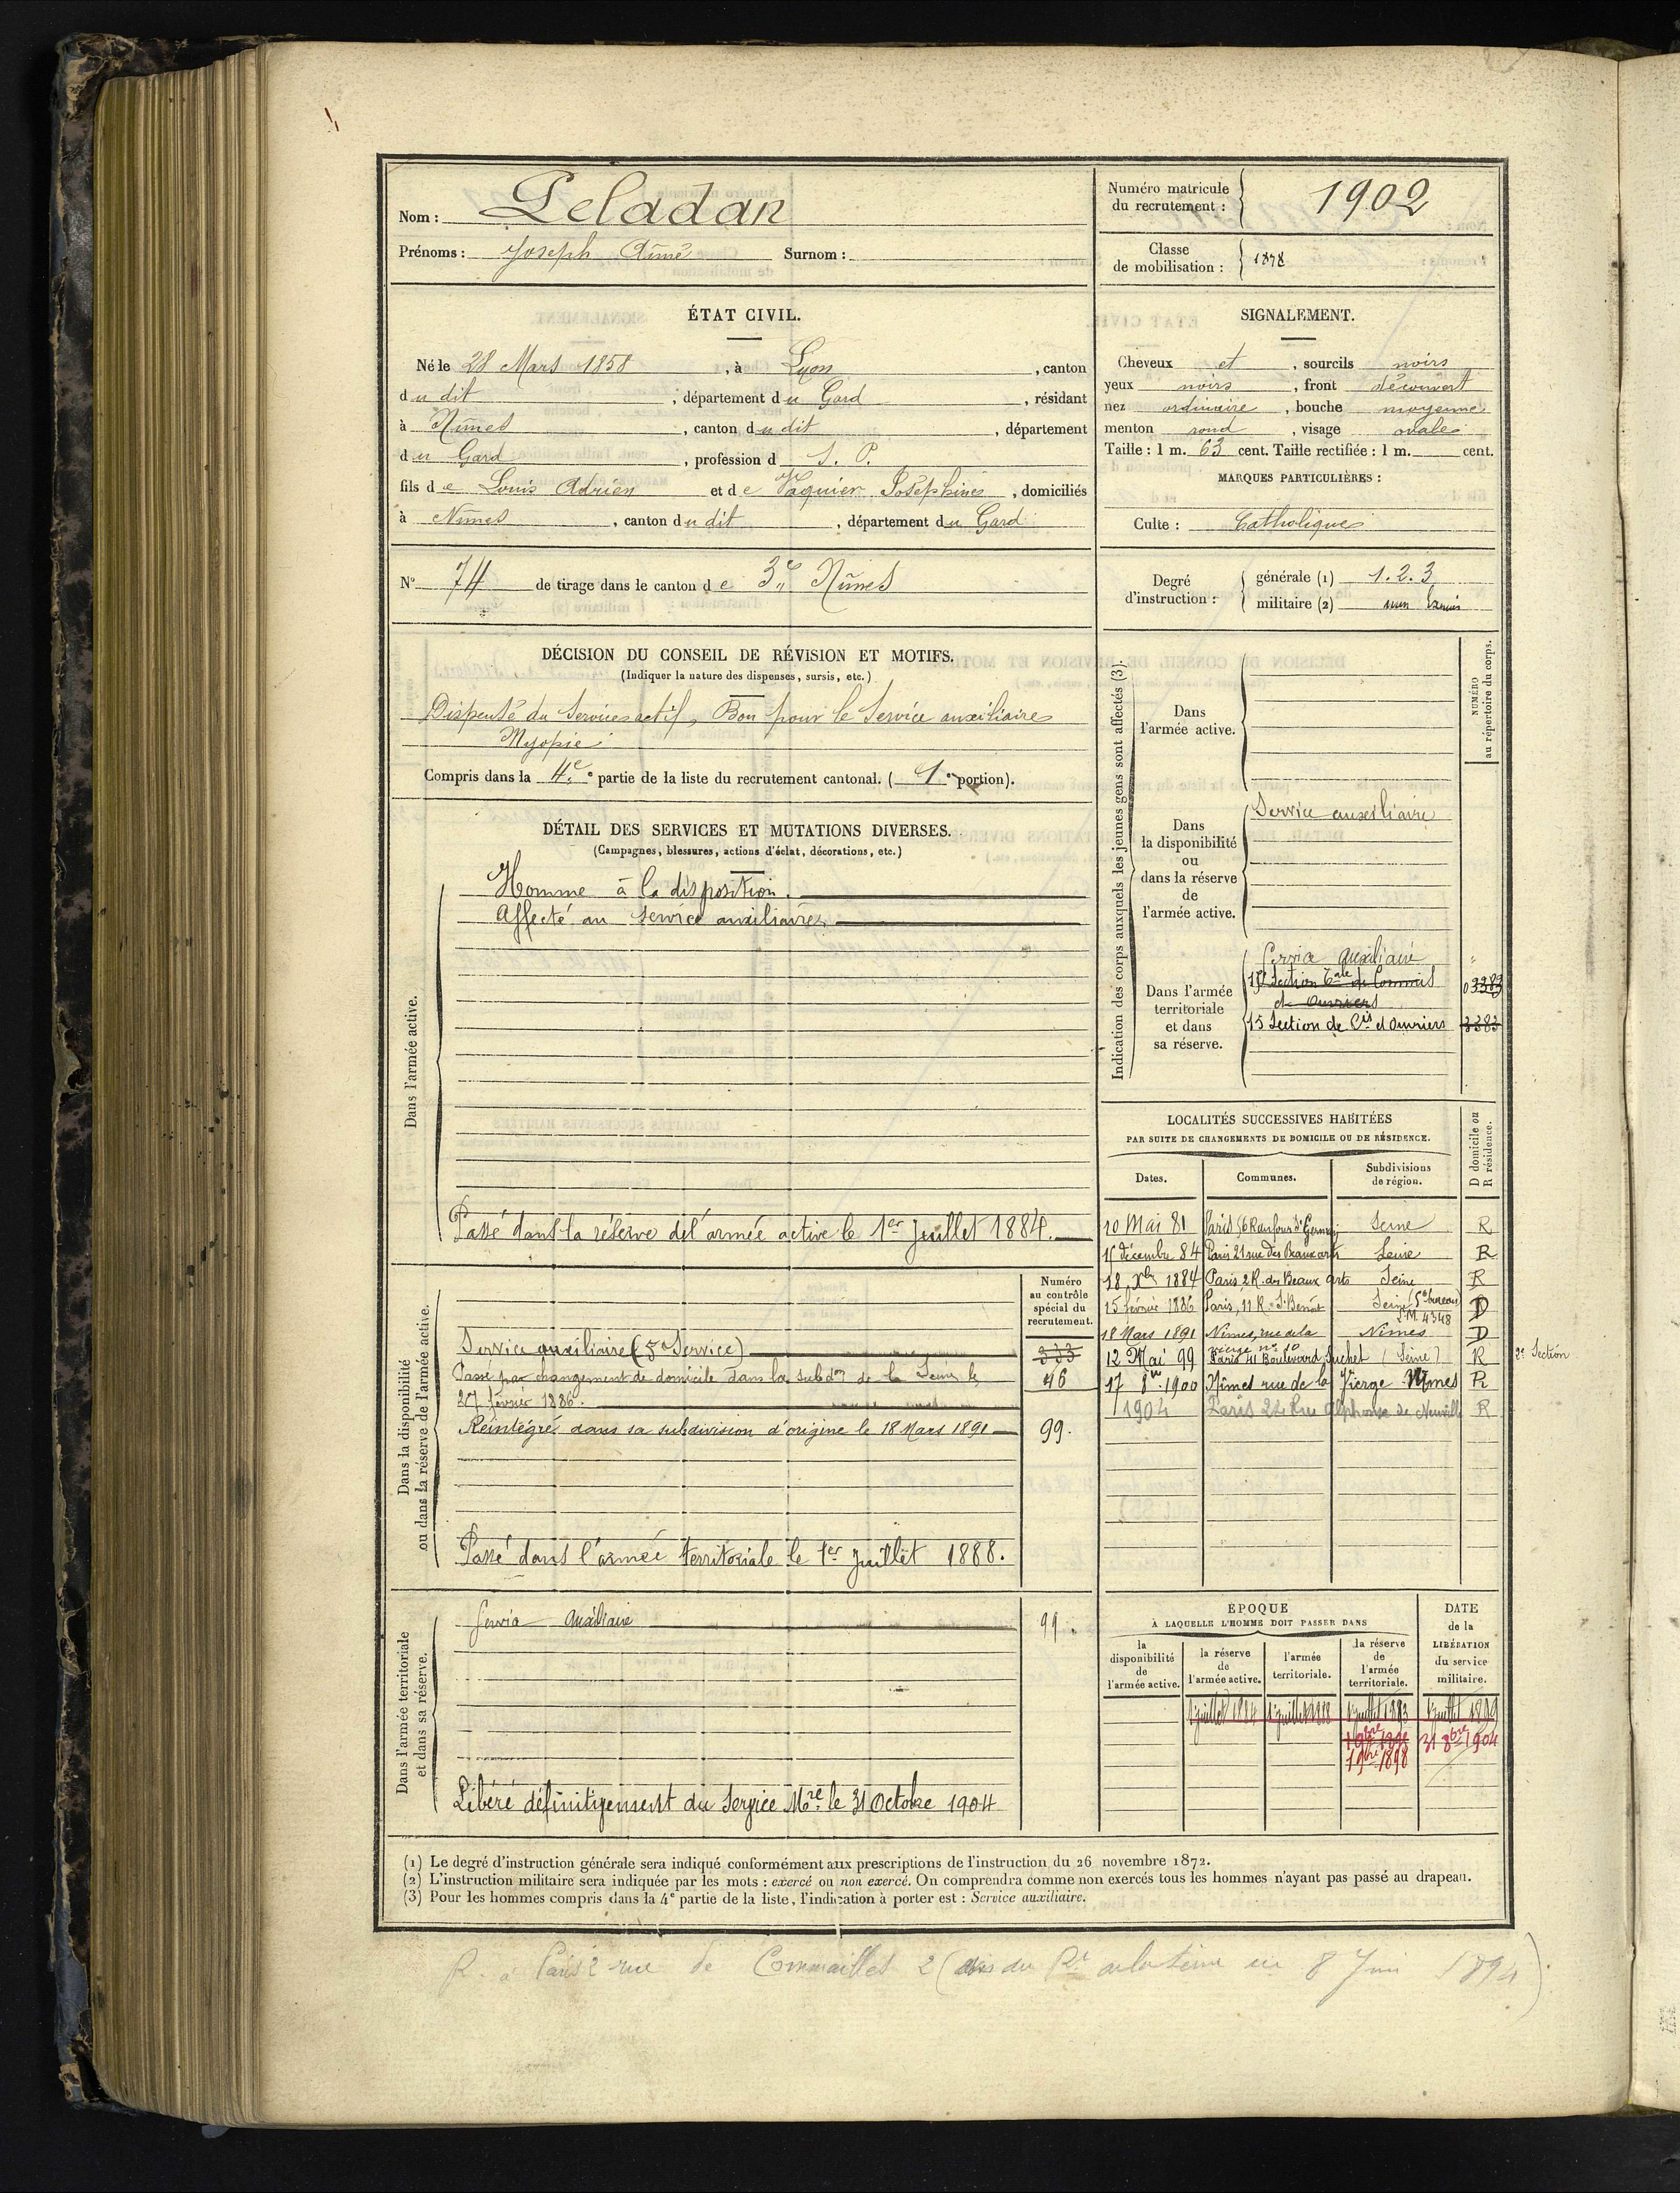 Nom : Peladan
Prénoms : Joseph Aimé Surnom :
Numéro matricule du recrutement : 1902
Classe de mobilisation : 1878
ÉTAT CIVIL.
Né le 28 Mars 1858, à Lyon, canton
du dit, département du Gard, résidant
à Nîmes, canton du dit, département
du Gard, profession d S. P.
fils de Louis Adrien et de Vaquier Joséphine, domiciliés
à Nîmes, canton du dit, département du Gard
SIGNALEMENT.
Cheveux et, sourcils noirs
yeux noirs, front découvert
nez ordinaire, bouche moyenne
menton rond, visage ovale
Taille : 1 m. 63 cent. Taille rectifiée : 1 m. cent.
MARQUES PARTICULIÈRES :
Culte : Catholique
N° 74 de tirage dans le canton de 3e Nîmes
Degré d'instruction :
générale (1) 1.2.3
militaire (2) non Exercé
DÉCISION DU CONSEIL DE RÉVISION ET MOTIFS.
(Indiquer la nature des dispenses, sursis, etc.)
Dispensé du Service actif, Bon pour le Service auxiliaire
Myopie
Compris dans la 4e e partie de la liste du recrutement cantonal. ( 1 e portion).
DÉTAIL DES SERVICES ET MUTATIONS DIVERSES.
(Campagnes, blessures, actions d'éclat, décorations, etc.)
Dans l'armée active.
Homme à la disposition.
Affecté au service auxiliaire
Passé dans la réserve de l'armée active le 1er Juillet 1884.
Dans la disponibilité
ou dans la réserve de l'armée active.
Numéro
au contrôle
spécial du
recrutement.
Service auxiliaire (5e Service) 333
Passé par changement de domicile dans la subdon de la Seine le 46
27 février 1886.
Réintégré dans sa subdivision d'origine le 18 Mars 1891 99.
Passé dans l'armée territoriale le 1er Juillet 1888.
Dans l'armée territoriale
et dans sa réserve.
Service Auxiliaire 99.
Libéré définitivement du Service Mre le 31 Octobre 1904
Indication des corps auxquels les jeunes gens sont affectés (3).
NUMÉRO
au répertoire du corps.
Dans
l'armée active.
Dans
la disponibilité
ou
dans la réserve
de
l'armée active.
Service auxiliaire
Dans l'armée
territoriale
et dans
sa réserve.
Service Auxiliaire "
15e Section Tale de Commis 03383
et Ouvriers
15 Section de Cis et Ouvriers 3383
LOCALITÉS SUCCESSIVES HABITÉES
PAR SUITE DE CHANGEMENTS DE DOMICILE OU DE RÉSIDENCE.
D domicile ou
R résidence.
Dates. Communes. Subdivisions de région.
10 Mai 81 Paris Seine R
décembre 84 Paris 21 rue des Beaux arts Seine R
18 Xbre 1884 Paris 2 R. des Beaux Arts Seine R
15 février 1886 Paris, 11 R. St Benoît Seine (5e bureau) D
S.M. 4348
18 Mars 1891 Nîmes, rue de la Nîmes D
vierge no 10
12 Mai 99 Paris 41 Boulevard Suchet (Seine) R 2e Section
17 8bre 1900 Nîmes rue de la Vierge Nîmes R
1904 Paris 24 Rue Alphonse de Neuville R
ÉPOQUE
À LAQUELLE L'HOMME DOIT PASSER DANS
DATE
de la
LIBÉRATION
du service
militaire.
la
disponibilité
de
l'armée active.
la réserve
de
l'armée active.
l'armée
territoriale.
la réserve
de
l'armée
territoriale.
1 juillet 1884 1 juillet 1888 1 juillet 1893 1 juillet 1899
1 9bre 1898 31 8bre 1904
1 9bre 1898
(1) Le degré d'instruction générale sera indiqué conformément aux prescriptions de l'instruction du 26 novembre 1872.
(2) L'instruction militaire sera indiquée par les mots : exercé ou non exercé. On comprendra comme non exercés tous les hommes n'ayant pas passé au drapeau.
(3) Pour les hommes compris dans la 4e partie de la liste, l'indication à porter est : Service auxiliaire.
R. à Paris 2 rue de Commailles 2 (avis du Rt de la Seine 8 Juin 1894)